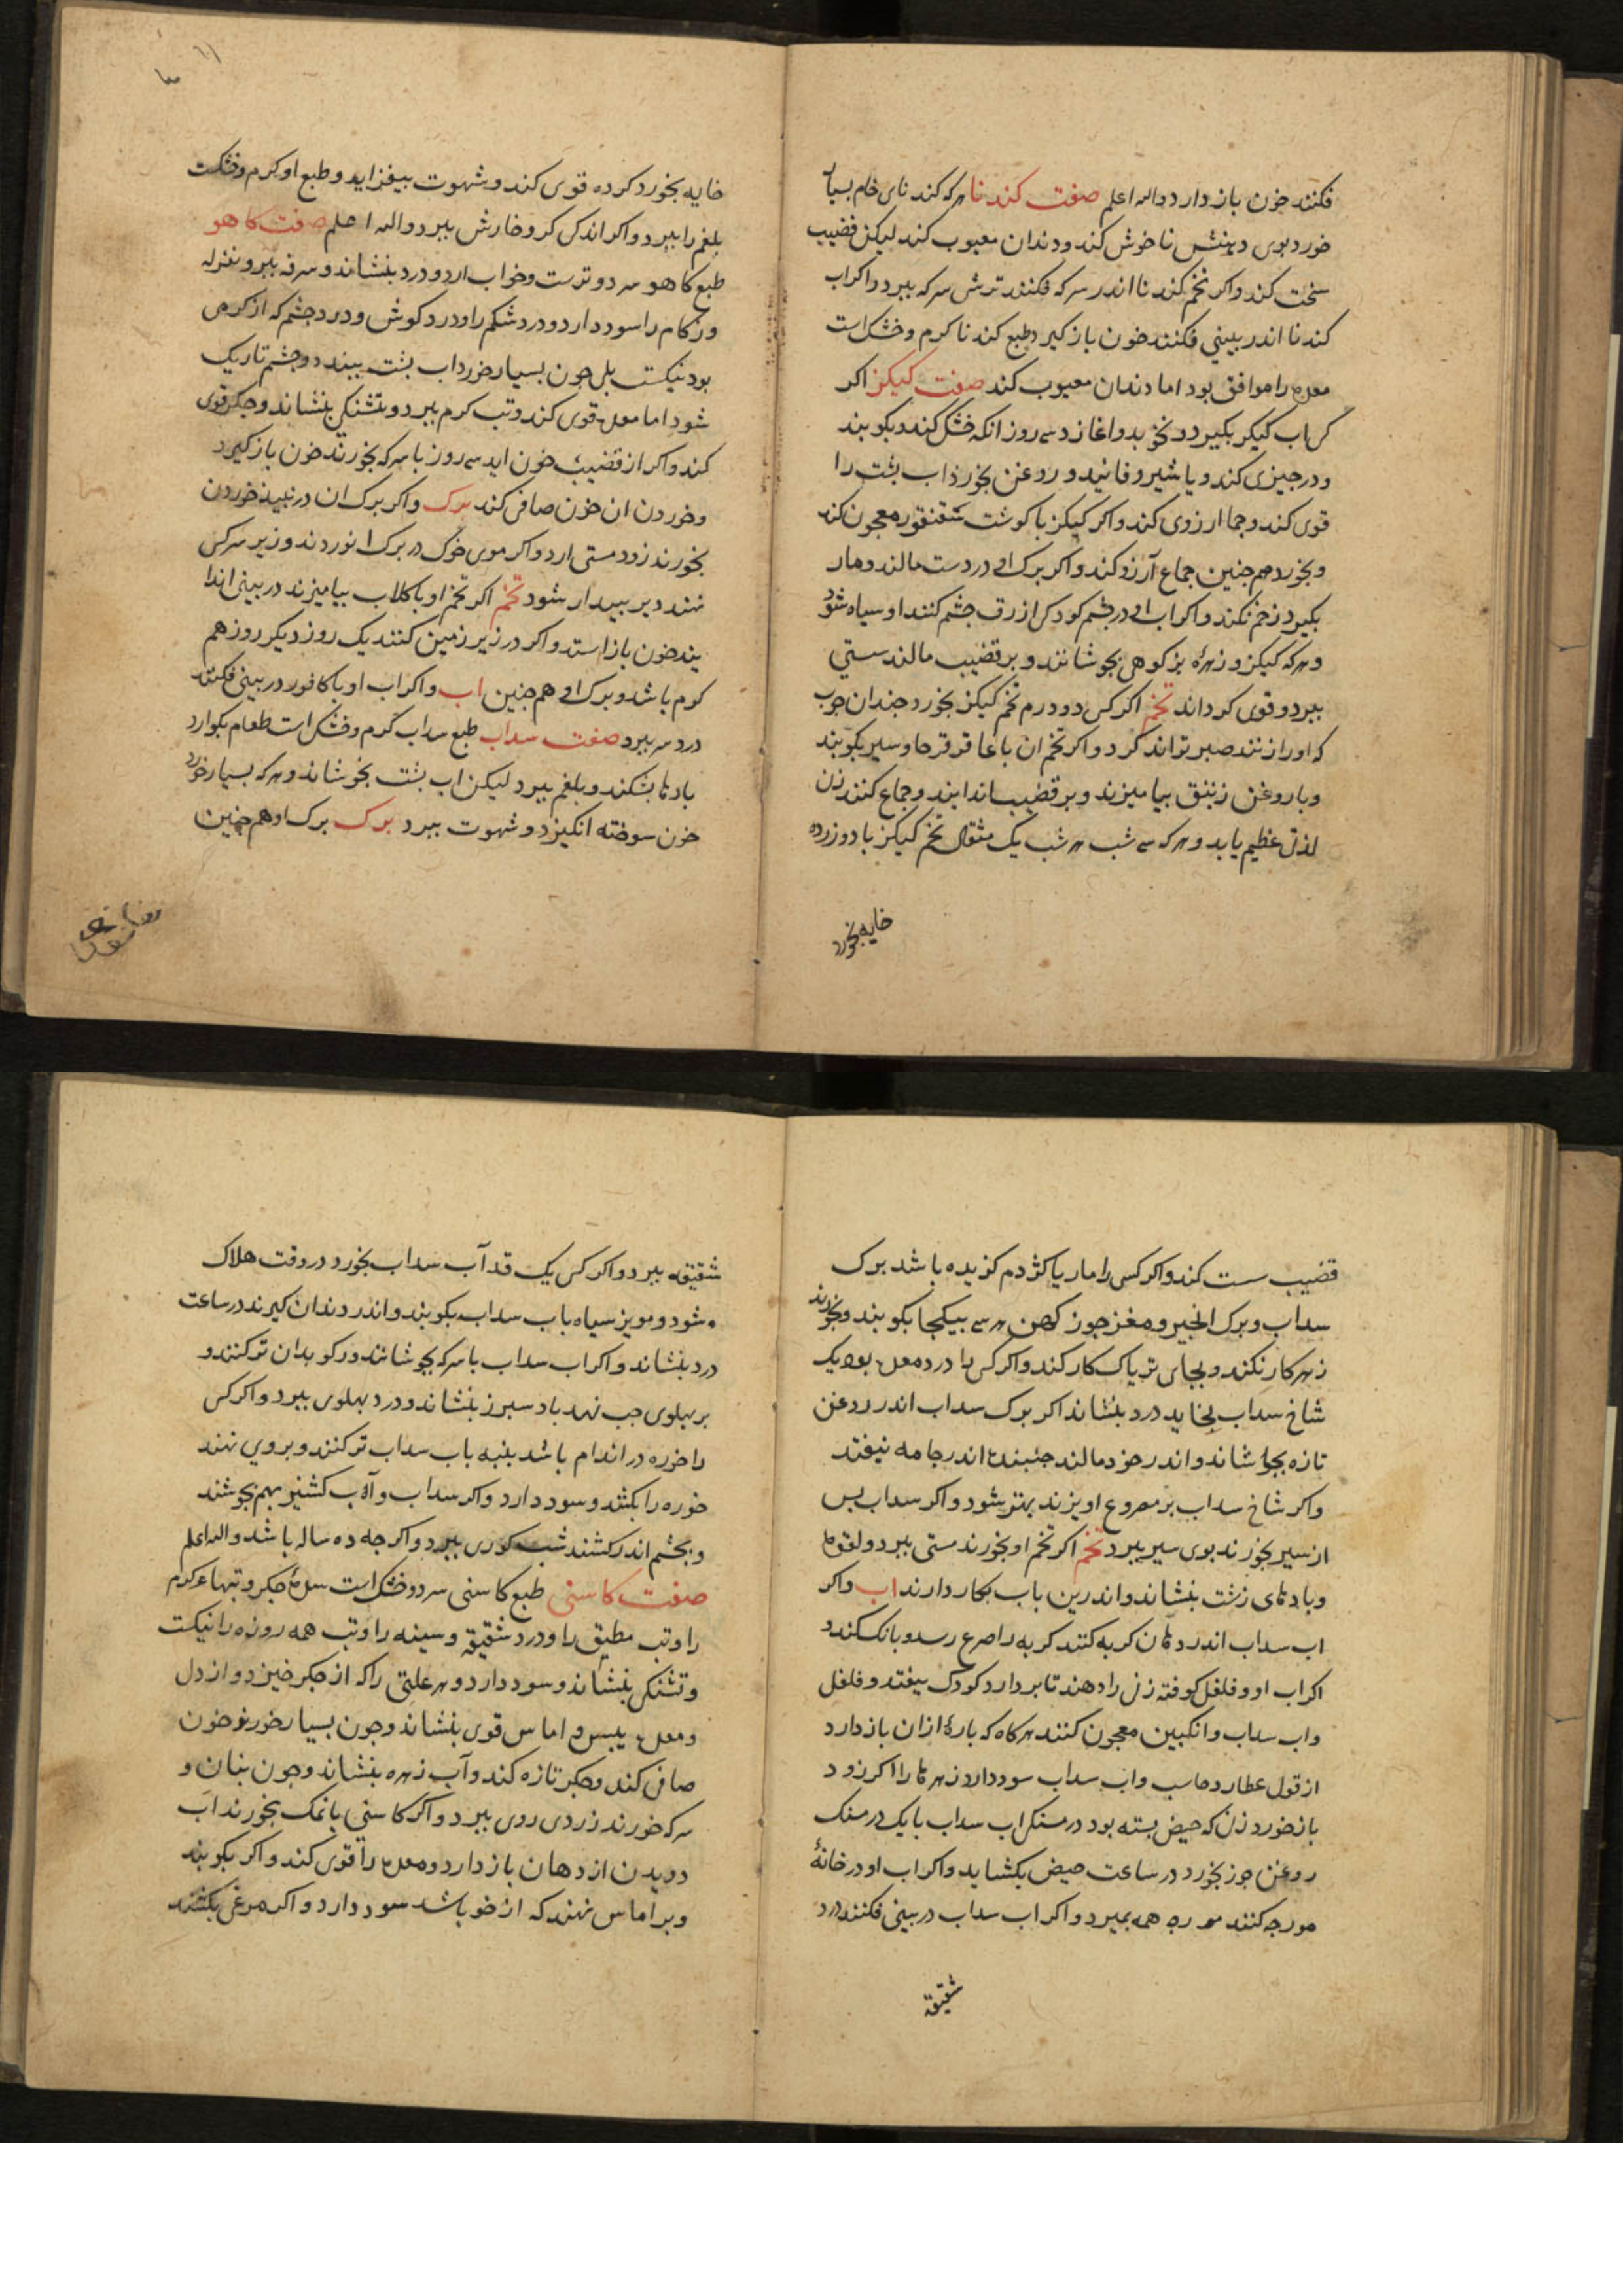 فکنند خون باز دارد والله اعلم صفت کندنا هر که کندنای خام بسیار
خورد بوی دهنش ناخوش کند و دندان معیوب کند لیکن قضیب
سخت کند و اکر تخم کندنا اندر سرکه فکنند ترشی سرکه ببرد و اکر آب
کندنا اندر بینی فکنند خون باز کیرد و طبع کندنا کرم و خشک است
معده را موافق بود اما دندان معیوب کند صفت کیکز اکر
آب کیکز بکیرد و نخود بدو اغارد سه روز انکه خشک کند و بکوبند
و در چیزی کند و یا شیر و فانید و روغن بخورد اب بشت را
قوی کند و جماع ارزوی کند و اکر کیکز با کوشت سقنقور معجون کند
و بخورد هم جنین جماع آرزو کند و اکر برک او در دست مالند و مار
بکیرد زخم نکند و اکر اب او در جشم کودکی ازرق جشم کنند او سیاه شود
و هر که کیکز و زهرهٔ بز کوهی بجوشانند و بر قضیب مالند سستی
ببرد و قوی کرداند تخم اکر کسی دو درم تخم کیکز بخورد جندان جوب
که او را زنند صبر تواند کرد و اکر تخم ان با عاقرقرحا و سیر بکوبند
و با روغن زنبق بیامیزند و بر قضیب اندایند و جماع کنند زن
لذتی عظیم یابد و هر که سه شب هر شب یک مثقال تخم کیکز با دو زرده
خایه بخورد
خایه بخورد کرده قوی کند و شهوت بیفزاید و طبع او کرم و خشکست
بلغم را ببرد و اکر اندکی کر و خارش ببرد والله اعلم صفت کاهو
طبع کاهو سرد و ترست و خواب ارد و درد بنشاند و سرفه ببرد و نزله
و زکام را سود دارد و درد شکم را و درد کوش و درد جشم که از کرمی
بود نیکست بلی جون بسیار خورد اب بشت ببندد و جشم تاریک
شود اما معده قوی کند و تب کرم ببرد و تشنکی بنشاند و جکر قوی
کند و اکر از قضیب خون اید سه روز با سرکه بخورند خون باز کیرد
و خوردن ان خون صافی کند برک و اکر برک ان در نبیذ خوردن
بخورند زود مستی ارد و اکر موی خوک در برک او نوردند و زیر سر کسی
نهند دیر بیدار شود تخم اکر تخم او با کلاب بیامیزند در بینی اندا
یند خون باز استد و اکر در زیر زمین کنند یک روز دیکر روز هم
کوم باشد و برک او هم جنین اب و اکر اب او با کافور در بینی فکنند
درد سر ببرد صفت سداب طبع سداب کرم و خشک است طعام بکوارد
بادها بشکند و بلغم ببرد لیکن اب بشت بخوشاند و هر که بسیار خورد
خون سوخته انکیزد و شهوت ببرد برک برک او هم جنین
قضیب سست کند و اکر کسی را مار یا کژدم کزیده باشد برک
سداب و برک انجیر و مغز جوز کهن هر سه بیکجا بکوبند و بخورند
زهر کار نکند و بجای تریاک کار کند و اکر کسی را درد معده بود یک
شاخ سداب بخاید درد بنشاند اکر برک سداب اندر روغن
تازه بجوشاند و اندر خود مالند جنبنده اندر جامه نیفتد
و اکر شاخ سداب بر مصروع اویزند بهتر شود و اکر سداب بس
از سیر بخورند بوی سیر ببرد تخم اکر تخم او بخورند مستی ببرد و لقوه
و بادهای زشت بنشاند و اندرین باب بکار دارند اب و اکر
اب سداب اندر دهان کربه کنند کربه را صرع رسد و بانک کند و
اکر اب او و فلفل کوفته زن را دهند تا بردارد کودک بیفتد و فلفل
و اب سداب و انکبین معجون کنند هر کاه که بارهٔ از ان باز دارد
از قول عطارد حاسب و اب سداب سود دارد زهرها را اکر زود
باز خورد زن که حیض بسته بود درمسنکی اب سداب با یک درمسنک
روغن جوز بخورد در ساعت حیض بکشاید و اکر اب او در خانهٔ
مورجه کنند مورچه همه بمیرد و اکر اب سداب در بینی فکنند درد
شقیقه
شقیقه ببرد و اکر کسی یک قدح آب سداب بخورد در وقت هلاک
شود و مویز سیاه باب سداب بکوبند و اندر دندان کیرند در ساعت
درد بنشاند و اکر اب سداب با سرکه بجوشانند و رکو بدان تر کنند و
بر بهلوی جب نهد باد سبرز بنشاند و درد بهلوی ببرد و اکر کسی
را خوره در اندام باشد بنبه باب سداب تر کنند و بروی نهند
خوره را بکشد و سود دارد و اکر سداب و آب کشنیز بهم بجوشند
و بجشم اندر کشند شب کوری ببرد و اکر جه ده ساله باشد والله اعلم
صفت کاسنی طبع کاسنی سرد و خشک است سدهٔ جکر و تبهاء کرم
را و تب مطبق را و درد شقیقه و سینه را و تب همه روزه را نیکست
و تشنکی بنشاند و سود دارد و هر علتی را که از جکر خیزد و از دل
و معده یبس و اماس قوی بنشاند و جون بسیار خورند خون
صافی کند و جکر تازه کند و آب زهره بنشاند و جون بنان و
سرکه خورند زردی روی ببرد و اکر کاسنی با نمک بخورند آب
دویدن از دهان باز دارد و معده را قوی کند و اکر بکوبند
و بر اماس نهند که از خو باشد سود دارد و اکر مرغی بکشند